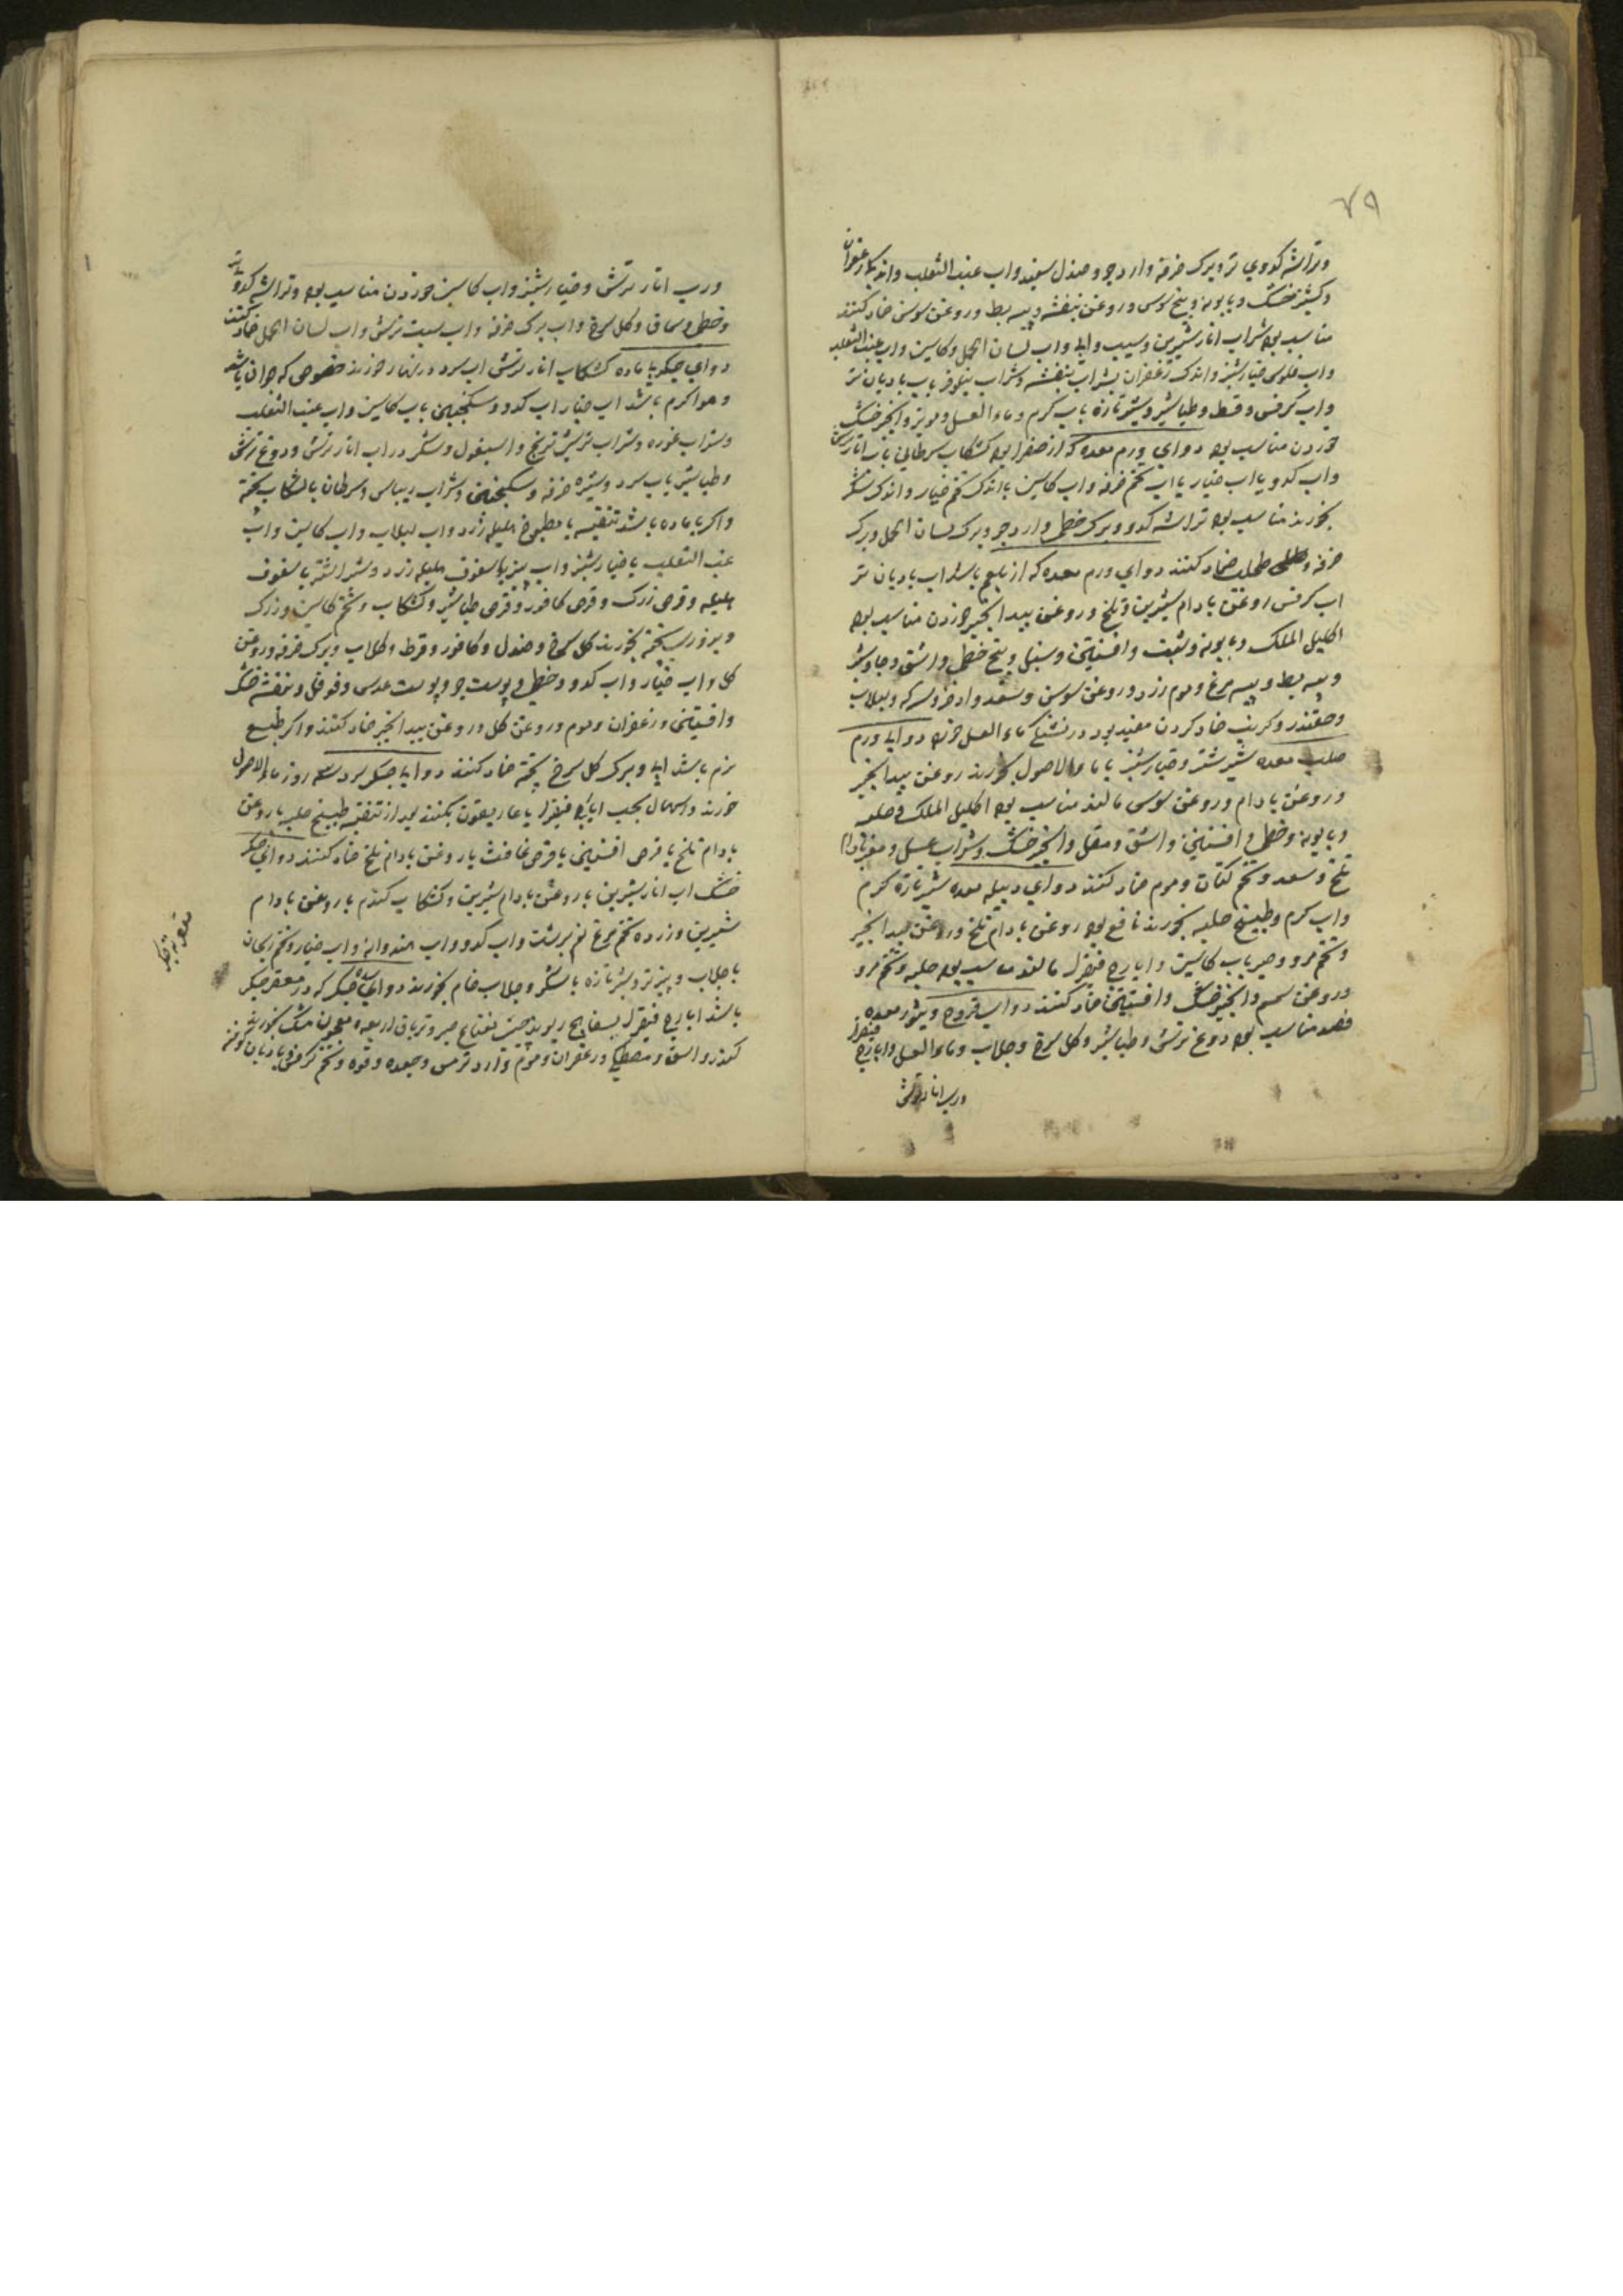 ۷۹
وتراشه کدوي تر وبرک خرفه وارد جو وصندل سفید واب عنب الثعلب واندک زعفران
وکشنیز خشک وبابونه وبیخ سوس وروغن بنفشه وپیه بط وروغن سوسن ضماد کنند
مناسب بود شراب انار شیرین وسیب وابی واب لسان الحمل وکاسنی واب عنب الثعلب
واب فلوس خیارشنبر واندک زعفران بشراب بنفشه وشراب نیلوفر باب بادیان تر
واب کرفس وقسط وطباشیر وشیر تازه باب کرم وماء العسل ومویز وانجیر خشک
خوردن مناسب بود دواي ورم معده که از صفرا بود کشکاب سرطاني باب انار ترش
واب کدو یا اب خیار یا اب تخم خرفه واب کاسنی بااندک تخم خیار واندک شکر
بخورند مناسب بود تراشه کدو وبرک خطمی وارد جو وبرک لسان الحمل وبرک
خرفه وطحلب ضماد کنند دواي ورم معده که از بلغم باشد اب بادیان تر
اب کرفس روغن بادام شیرین وتلخ وروغن بید انجیر خوردن مناسب بود
اکلیل الملک وبابونه وشبت وافسنتین وسنبل وبیخ خطمی واشق وجاوشیر
وپیه بط وپیه مرغ وموم زرد وروغن سوسن وسعد واذخر وسرکه ولبلاب
وچغندر وکرنب ضماد کردن مفید بود در تشنکی ماء العسل خورد دواي ورم
صلب معده شیر شتر وخیارشنبر با ماء الاصول بخورند روغن بید انجیر
وروغن بادام وروغن سوسن مالند مناسب بود اکلیل الملک وحلبه
وبابونه وخطمی وافسنتین واشق ومقل وانجیر خشک وشراب عسل ومغز بادام
تلخ وسعد وتخم کتان وموم ضماد کنند دواي دبیله معده شیر تازه کرم
واب کرم وطبیخ حلبه بخورند نافع بود روغن بادام تلخ وروغن بید انجیر
وتخم مرو وصبر باب کاسنی وایارج فیقرا مالند مناسب بود حلبه وتخم مرو
وروغن سمسم وانجیر خشک وافسنتین ضماد کنند دواي قروح وبثور معده
فصد مناسب بود دوغ ترش وطباشیر وکل سرخ وجلاب وماء العسل وایارج فیقرا
ورب انار ترش
ورب انار ترش وخیارشنبر واب کاسنی خوردن مناسب بود وتراشه کدو تر
وخطمی وسماق وکل سرخ واب برک خرفه واب سیب ترش واب لسان الحمل ضماد کنند
دواي جکر باماده کشکاب انار ترش اب سرد در نهار خورند خصوصی که جوان باشد
وهوا کرم باشد اب خیار اب کدو وسکنجبین باب کاسنی واب عنب الثعلب
وشراب غوره وشراب ترشی ترنج واسبغول وشکر در اب انار ترش ودوغ ترش
وطباشیر باب سرد وشیره خرفه وسکنجبین وشراب ریباس وسرطان باکشکاب پخته
واکر باماده باشد تنقیه بامطبوخ هلیله زرد واب لبلاب واب کاسنی واب
عنب الثعلب باخیارشنبر واب پنیر باسفوف هلیله زرد وشیر اشتر باسفوف
هلیله وقرص زرک وقرص کافور وقرص طباشیر وکشکاب وتخم کاسنی وزرک
بخورند کل سرخ وصندل وکافور وقرط وکلاب وبرک خرفه وروغن
کل واب خیار واب کدو وخطمی وپوست جو وپوست عدس وفوفل وبنفشه خشک
وافسنتین وزعفران وموم وروغن کل وروغن بید انجیر ضماد کنند واکر طبع
نرم باشد ابی وبرک کل سرخ پخته ضماد کنند دواي جکر سرد سه روز ماء الاصول
خورند واسهال بحب ایارج فیقرا یا غاریقون بکنند بعد از تنقیه طبیخ حلبه باروغن
بادام تلخ یا قرص افسنتین یا قرص غافث باروغن بادام تلخ ضماد کنند دواي جکر
خشک اب انار شیرین باروغن بادام شیرین وکشکاب کندم باروغن بادام
شیرین وزرده تخم مرغ نیم برشت واب کدو واب هندوانه واب خیار وتخم ریحان
باجلاب وپنیر تر وشیر تازه باشکر وجلاب خام بخورند دواي سده جکر که در مقعر جکر
باشد ایارج فیقرا بسفایج ریوند چینی نعناع صبر وتریاق اربعه ومعجون مسک بخورند
کندر واشق ومصطکی وزعفران وموم وارد ترمس وجعده وفوه وتخم کرفس بادیان کوفته